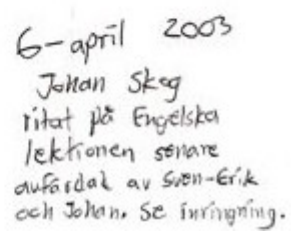 6-april 2003
Johan Skog
ritat på Engelska
lektionen senare
av Sven-Erik
och Johan. Se inringning.